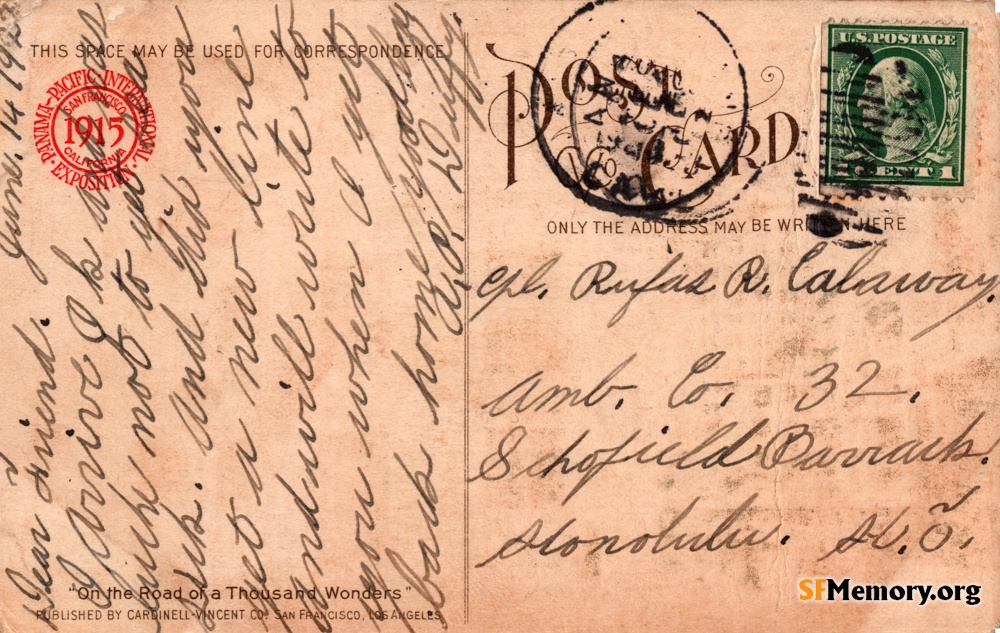 THIS SPACE MAY BE USED FOR CORRESPONDENCE
PANAMA-PACIFIC INTERNATIONAL EXPOSITION
SAN FRANCISCO
1915
CALIFORNIA
June. 14 19
Dear Friend.
I arrive O k
not to
And did you
get a new line
and will write to
you when I get
back home
Duffy
"On the Road of a Thousand Wonders"
PUBLISHED BY CARDINELL-VINCENT CO. SAN FRANCISCO, LOS ANGELES
POST CARD
ONLY THE ADDRESS MAY BE WRITTEN HERE
U.S. POSTAGE
CENT 1
CAL.
Cpl. Rufas R. Calaway.
Amb. Co. 32.
Schofield Barrack.
Honolulu. H. O.
SFMemory.org